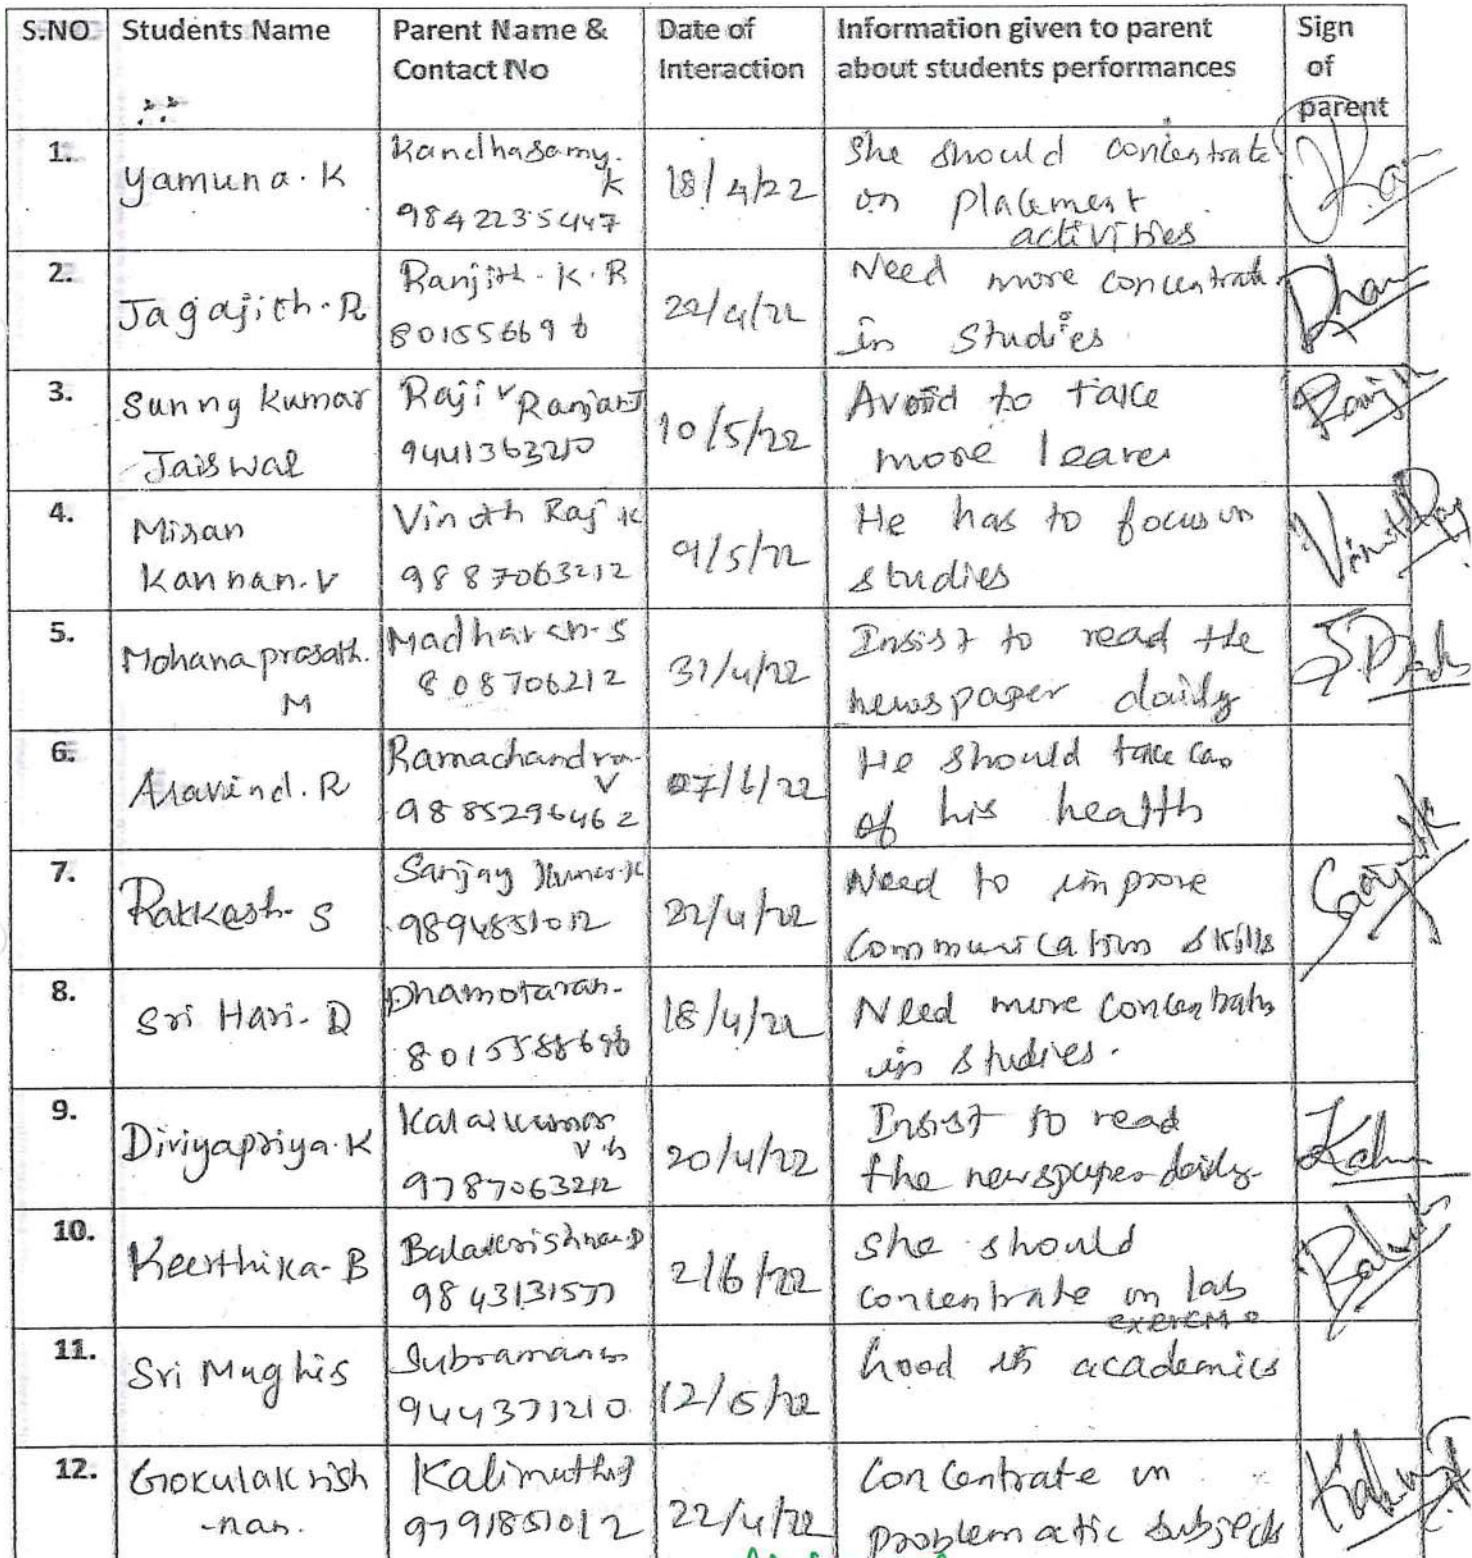 S.NO Students Name Parent Name & Contact No Date of Interaction Information given to parent about students performances Sign of parent
1. Yamuna. K Kandhasamy. K 9842235447 18/4/22 She should concentrate on placement activities
2. Jagajith. R Ranjith. K. R 80155669 22/4/22 Need more concentrat in studies
3. Sunny Kumar Jaiswal Rajiv Ranjan J 9441363210 10/5/22 Avoid to take more leave
4. Kannan. V Vinoth Raj K 9887063212 9/5/22 He has to focus in studies Vinoth Raj
5. Mohanaprasath. M Madhavan. S 808706212 31/4/22 Insist to read the newspaper daily
6. Aravind. R Ramachandran V 9885296462 07/6/22 He should take care of his health
7. Rakkesh. S Sanjay Kumar. K 9894851012 22/4/22 Need to improve communication skills
8. Sri Hari. D Dhamotaran. 18/4/22 Need more concentratn in studies.
9. Diviyapriya. K Kalaikumar 9787063212 20/4/22 Insist to read the newspaper daily.
10. Keerthika. B Balakrishnan. D 9843131577 2/6/22 She should concentrate in lab
11. Sri Mughis 944371210 12/5/22 Good in academics
12. Gokulakrish -nan. Kalimuthu 9791851012 22/4/22 Concentrate in problematic subjects